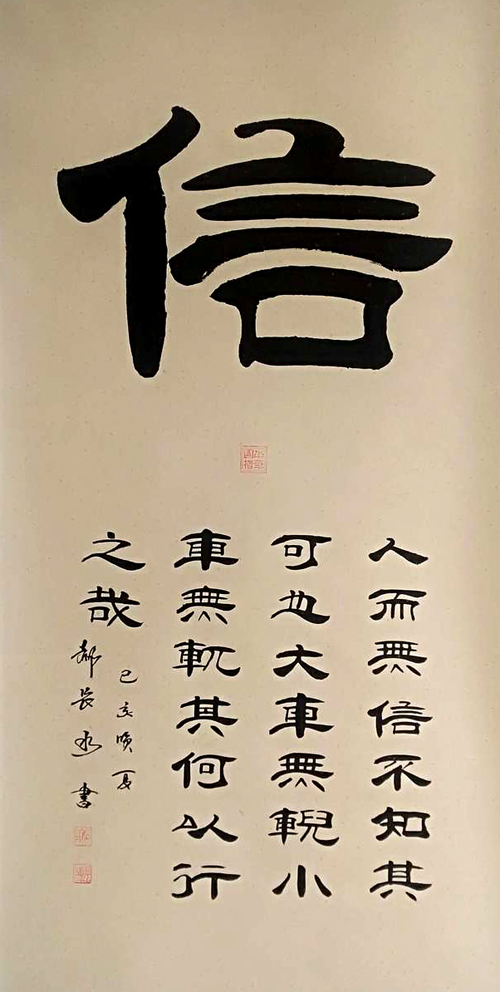 信
人而無信不知其
可也大車無輗小
車無軏其何以行
之哉
己亥夏
郝長書